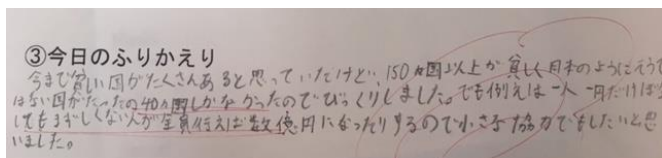 ③今日のふりかえり
今まで貧しい国がたくさんあると思っていたけど、150ヵ国以上が貧しく日本のようにそうで
はない国がたったの40ヵ国しかなかったのでびっくりしました。でも例えば一人一円だけぼ
してもまずしくない人が全員行えば数億円になったりするので小さな協力でもしたいと思
いました。